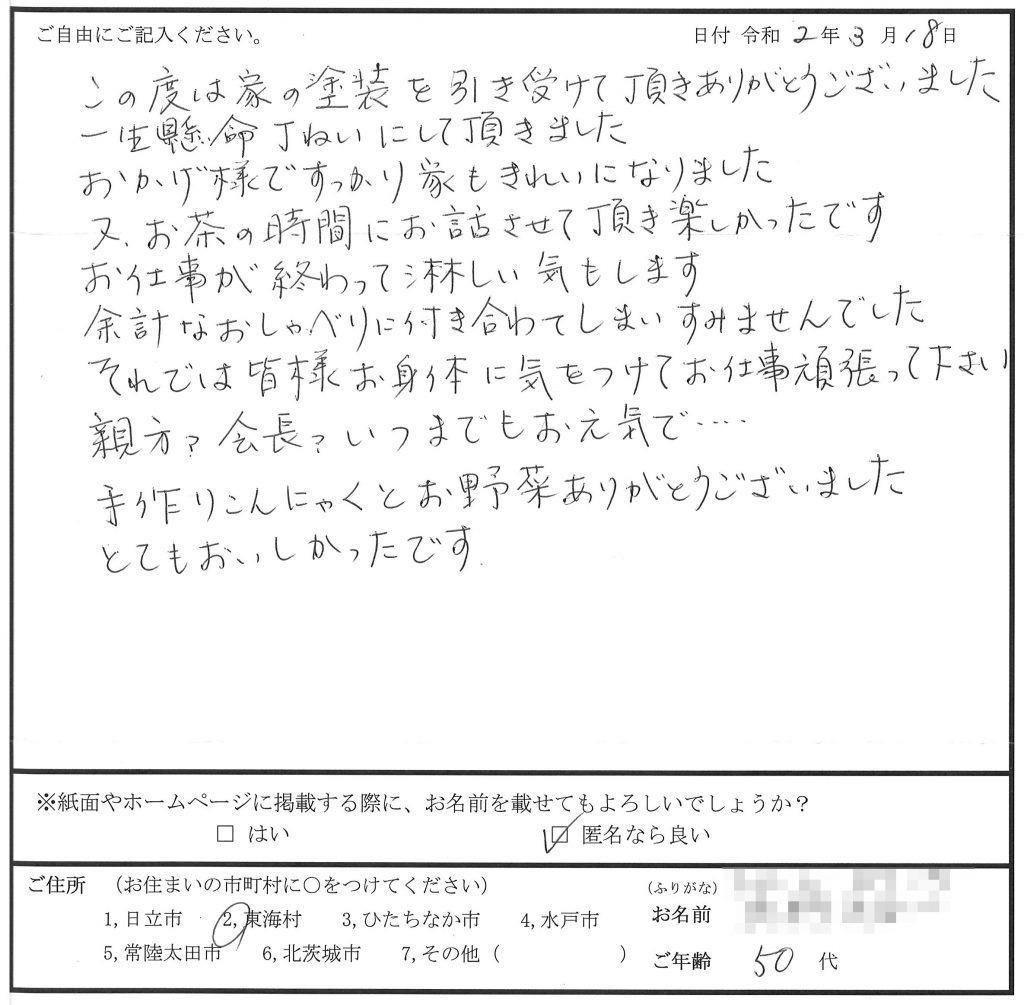 ご自由にご記入ください。 日付 令和 2 年 3 月 18 日
この度は家の塗装を引き受けて頂きありがとうございました
一生懸命丁ねいにして頂きました
おかげ様ですっかり家もきれいになりました
又、お茶の時間にお話させて頂き楽しかったです
お仕事が終わって淋しい気もします
余計なおしゃべりに付き合わてしまいすみませんでした
それでは皆様お身体に気をつけてお仕事頑張って下さい
親方?会長?いつまでもお元気で・・・・
手作りこんにゃくとお野菜ありがとうございました
とてもおいしかったです.
※紙面やホームページに掲載する際に、お名前を載せてもよろしいでしょうか?
□ はい ☑ 匿名なら良い
ご住所 (お住まいの市町村に○をつけてください) (ふりがな)
1,日立市 2,東海村 3,ひたちなか市 4,水戸市 お名前
5,常陸太田市 6,北茨城市 7,その他 ( ) ご年齢 50 代